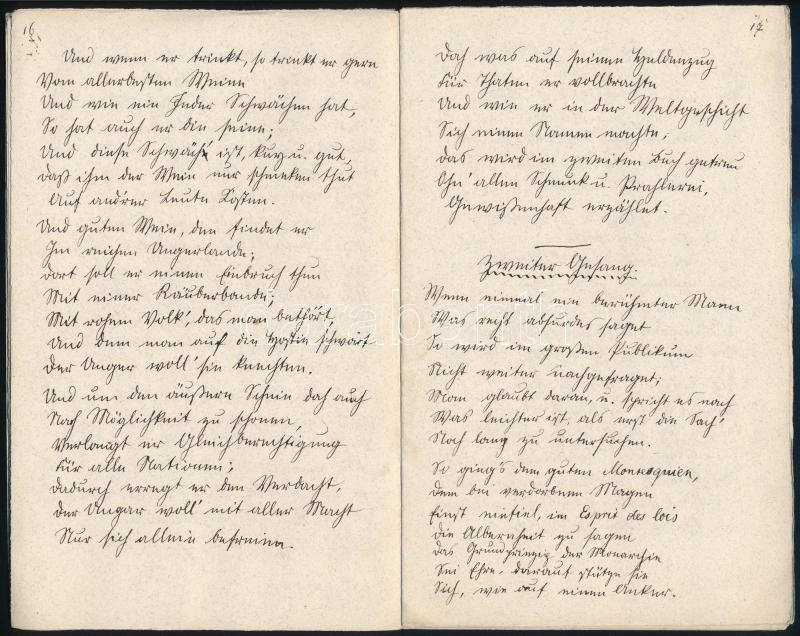 16
Und wenn er trinkt, so trinkt er gern
Vom allerbesten Weine
Und wie ein Jeder Schwächen hat,
So hat auch er die seine;
Und diese Schwäch' ist, kurz u. gut,
Daß ihm der Wein nur schmeken thut
Auf andrer Leute Kosten.
Und guten Wein, den findet er
Im reichen Ungerlande;
Dort soll er einen Einbruch thun
Mit einer Räuberbande;
Mit rohem Volk', das man bethört,
Und dem man auf die Hostie schwört
Der Unger woll' sie knechten.
Und um den äußern Schein doch auch
Nach Möglichkeit zu schonen,
Verlangt er Gleichberechtigung
Für alle Nationen;
Dadurch erregt er den Verdacht,
Der Ungar woll' mit aller Macht
Nur sich allein befreien.
17
Doch was auf seinem Heldenzug
Für Thaten er vollbrachte
Und wie er in der Weltgeschicht
Sich einen Namen machte;
Das wird im zweiten Buch getreu
Ohn' allen Schmuck u. Prahlerei,
Gewissenhaft erzählet.
Zweiter Gesang.
Wenn einmal ein berühmter Mann
Was recht absurdes saget
So wird im großen Publikum
Nicht weiter nachgefraget;
Man glaubt daran, u. spricht es nach
Was leichter ist, als erst die Sach'
Noch lang zu untersuchen.
So ging's dem guten Montesquieu,
Dem bei verdorbnem Magen
Einst einfiel, im Esprit des lois
Die Albernheit zu sagen
Das Grundprinzip der Monarchie
Sei Ehre, darauf stütze sie
Sich, wie auf einen Anker.